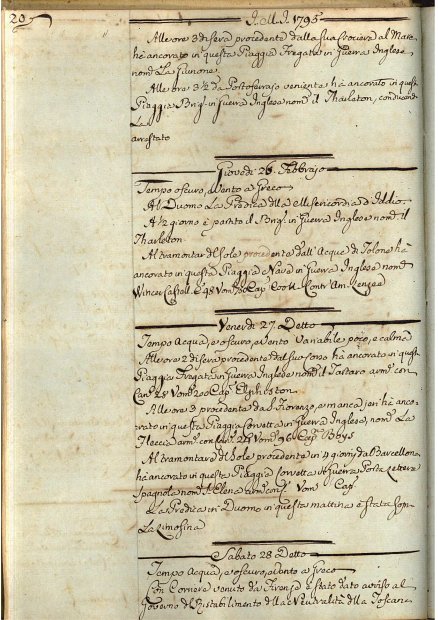 20
J. M. J. 1795
Alle ore 3 di sera procedente dalla sua Crociera al Mare
hà ancorato in questa Piaggia Fregata in Guerra Inglese
nom.ª La Giunone
Alle ore 3½ da Portoferrajo veniente hà ancorato in questa
Piaggia Brigº in Guerra Inglese nomº il Tharleton, conducendo
La
arrestato
Giovedi 26. Febbrajo
Tempo oscuro, a Vento a Greco
Al Duomo La Predica della Misericordia d'Iddio
A ½ giorno è partito il Brigº in Guerra Inglese nomº il
Tharleton
Al tramontar del Sole procedente dall' Acque di Tolone hà
ancorato in questa Piaggia Nave in Guerra Inglese nomª
Capº
Venerdi 27. Detto
Tempo Acqua, e oscuro, a Vento Variabile poco, e calma
Alle ore 2 di sera procedente dal suo Corso hà ancorato in questa
Piaggia Fregata in Guerra Inglese nomª il Tartaro armª con
Canⁱ 28 Vomⁱ 200 Capº Elphinston
Alle ore 3 procedente da S. Fiorenzo, e manca jeri hà anco-
rato in questa Piaggia Corvetta in Guerra Inglese, nomª La
Fleccia armª con Canⁱ 24 Vomⁱ 96 Capº Boys
Al tramontare del Sole procedente in 4 giorni da Barcellona
hà ancorato in questa Piaggia Corvetta in Guerra Porta Lettere
Spagnola nomª S. Elena armª con Vomⁱ Capº
La Predica in Duomo in questa mattina è stata sopra
La Limosina
Sabato 28 Detto
Tempo Acqua, e oscuro, a Vento a Greco
Con Corriere venuto da Firenze è stato dato avviso al
Governo del Ristabilimento della Neutralità della Toscana